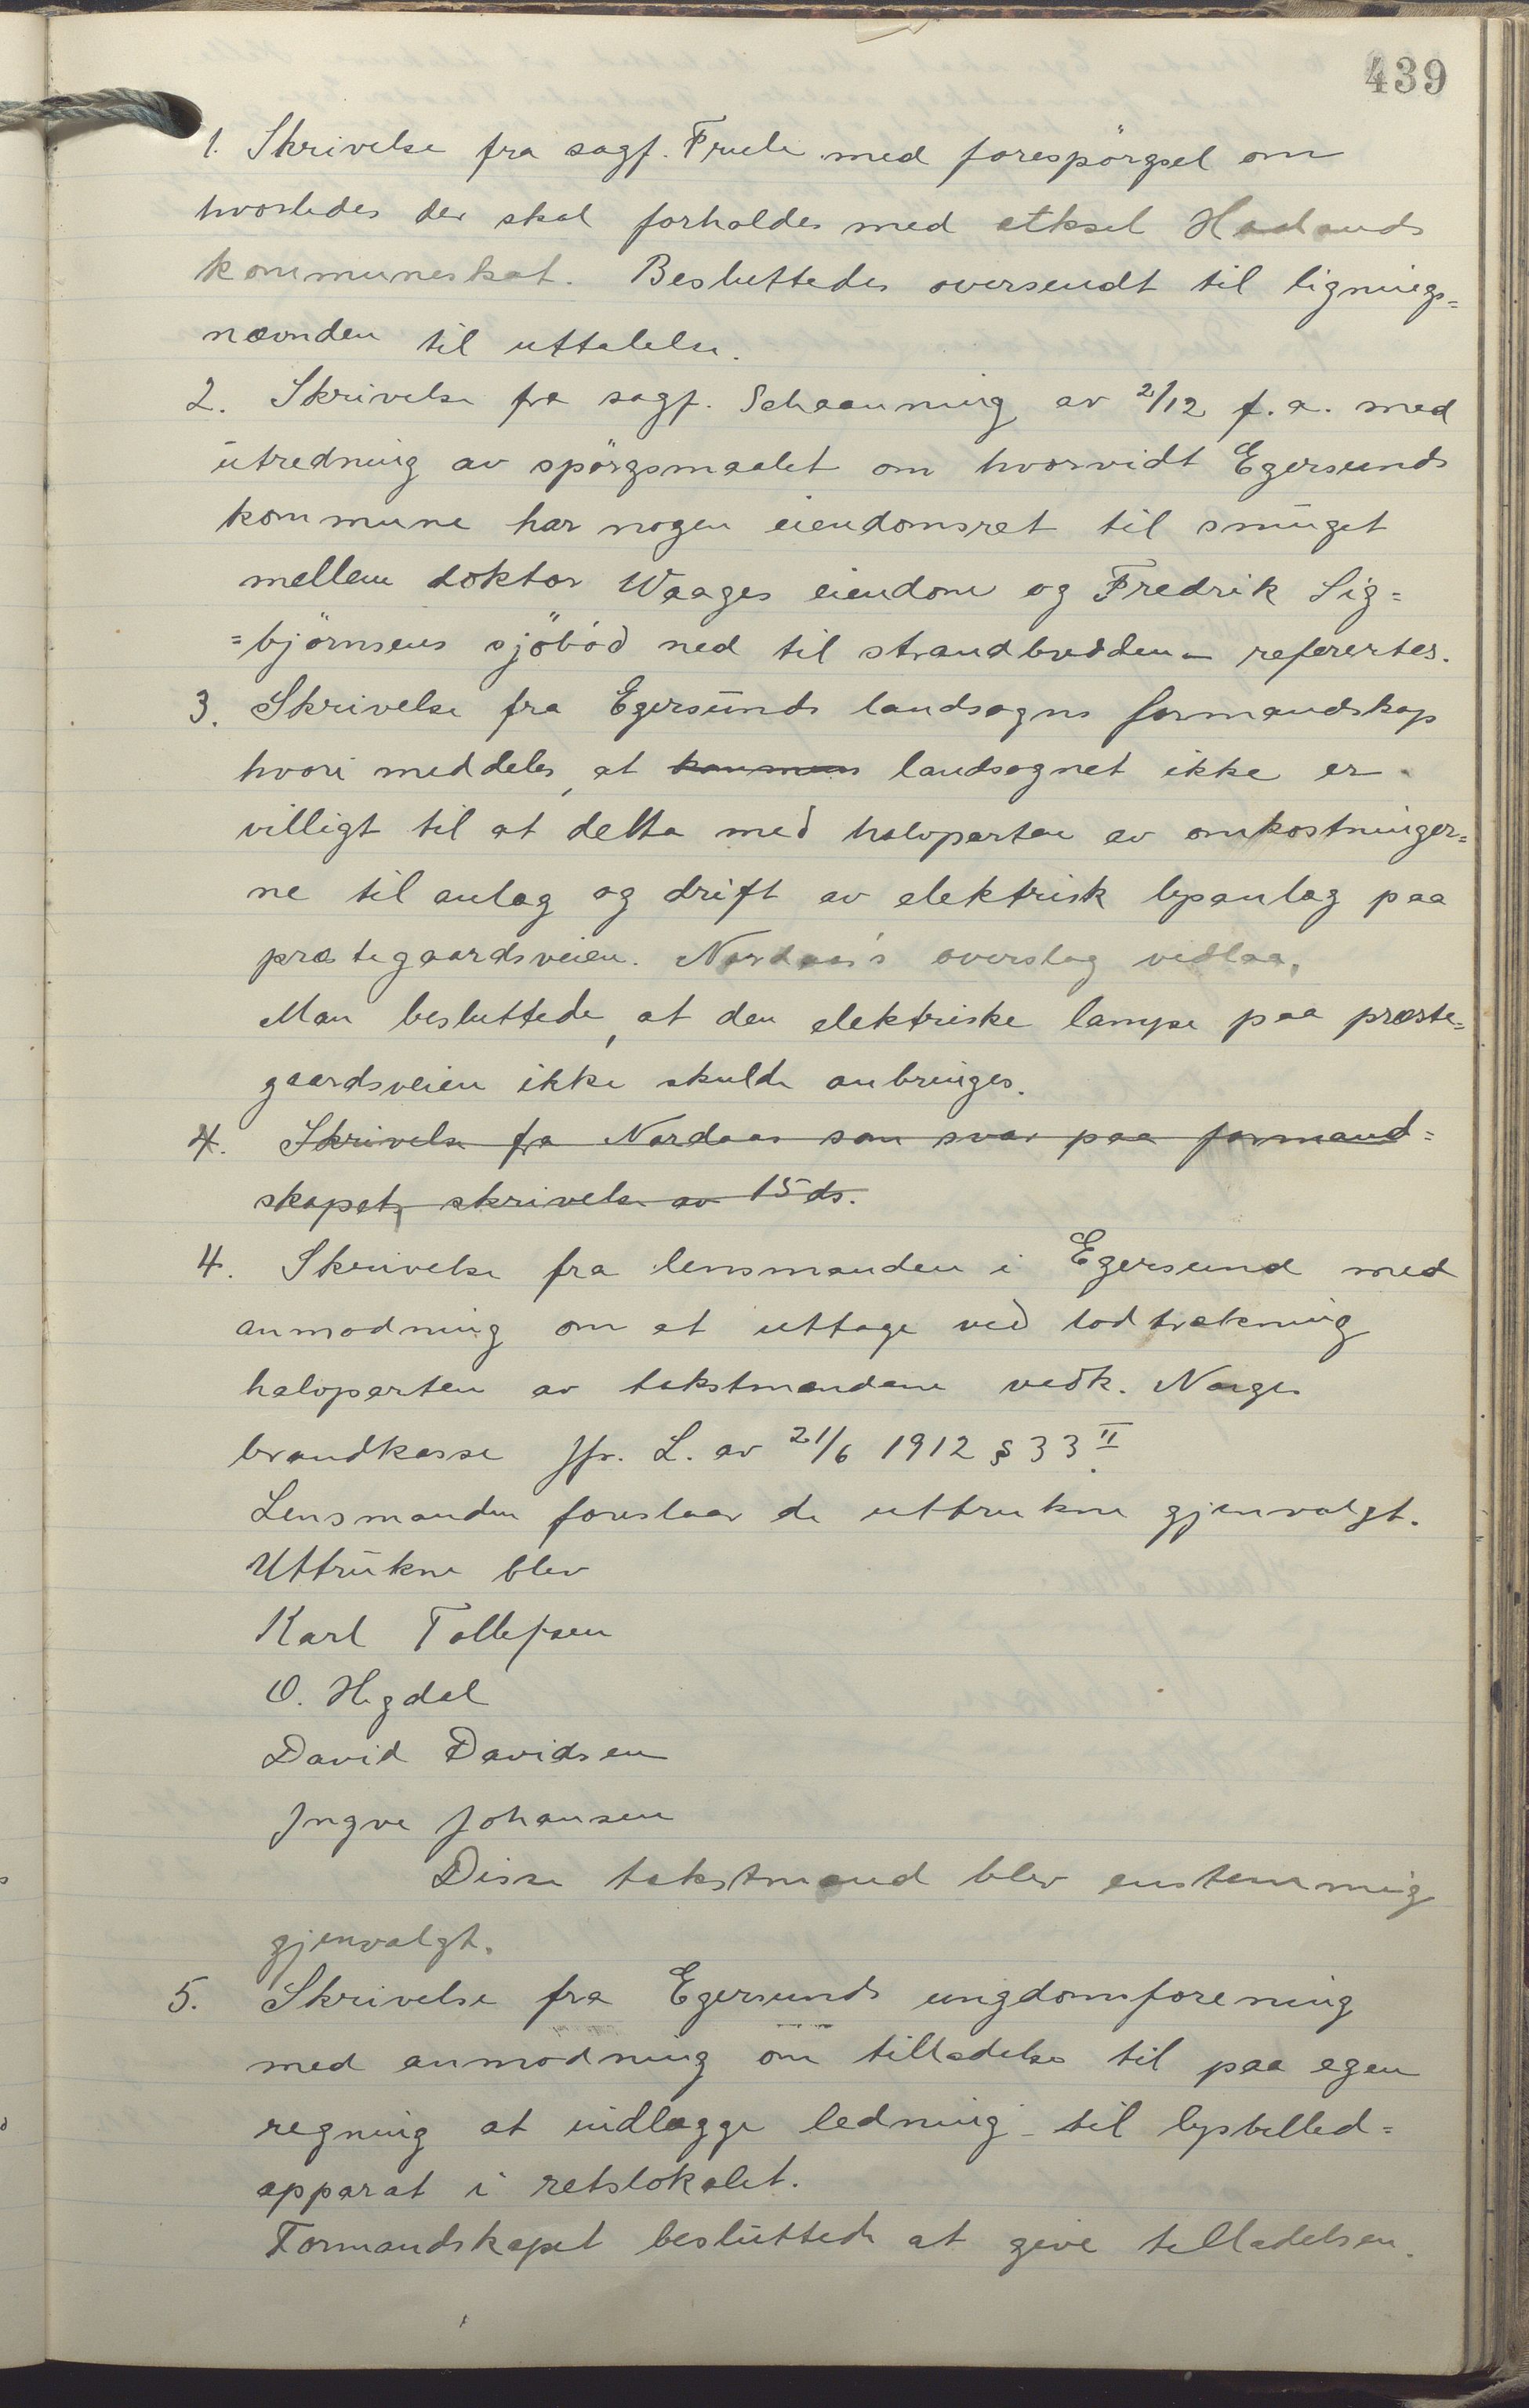 439
1. Skrivelse fra sagf. Fruele med forespörgsel om
hvorledes der skal forholdes med Aksel Hadlands
kommuneskat. Besluttedes oversendt til lignings=
nævnden til uttalelse.
2. Skrivelse fra sagf. Schaanning av 2/12 f.a. med
utredning av spörgsmaalet om hvorvidt Egersunds
kommune har nogen eiendomsret til smuget
mellem doktor Waages eiendom og Fredrik Sig=
=björnsens sjöbod ned til strandbredden — refereertes.
3. Skrivelse fra Egersunds landsogns formandskap
hvori meddeles, at kommun landsognet ikke er
villigt til at delta med halvparten av omkostninger=
ne til anlæg og drift av elektrisk lysanlæg paa
prestegaardsveien. Nordaas's overslag vedlaa.
Man besluttede, at den elektriske lampe paa præste=
gaardsveien ikke skulde anbringes.
4. Skrivelse fra Nordaas som svar paa formand=
skapets skrivelse av 15 ds.
4. Skrivelse fra lensmanden i Egersund med
anmodning om at uttage ved lodtrækning
halvparten av takstmændene vedk. Norges
brandkasse Jfr. L. av 21/6 1912 § 33 II.
Lensmanden foreslaar de uttrukne gjenvalgt.
Uttrukne blev
Karl Tollefsen
O. Hegdal
David Davidsen
Ingve Johansen
Disse takstmænd blev enstemmig
gjenvalgt.
5. Skrivelse fra Egersunds ungdomsforening
med anmodning om tilladelse til paa egen
regning at indlægge ledning til lysbilled=
apparat i retslokalet.
Formandskapet besluttede at give tilladelsen.